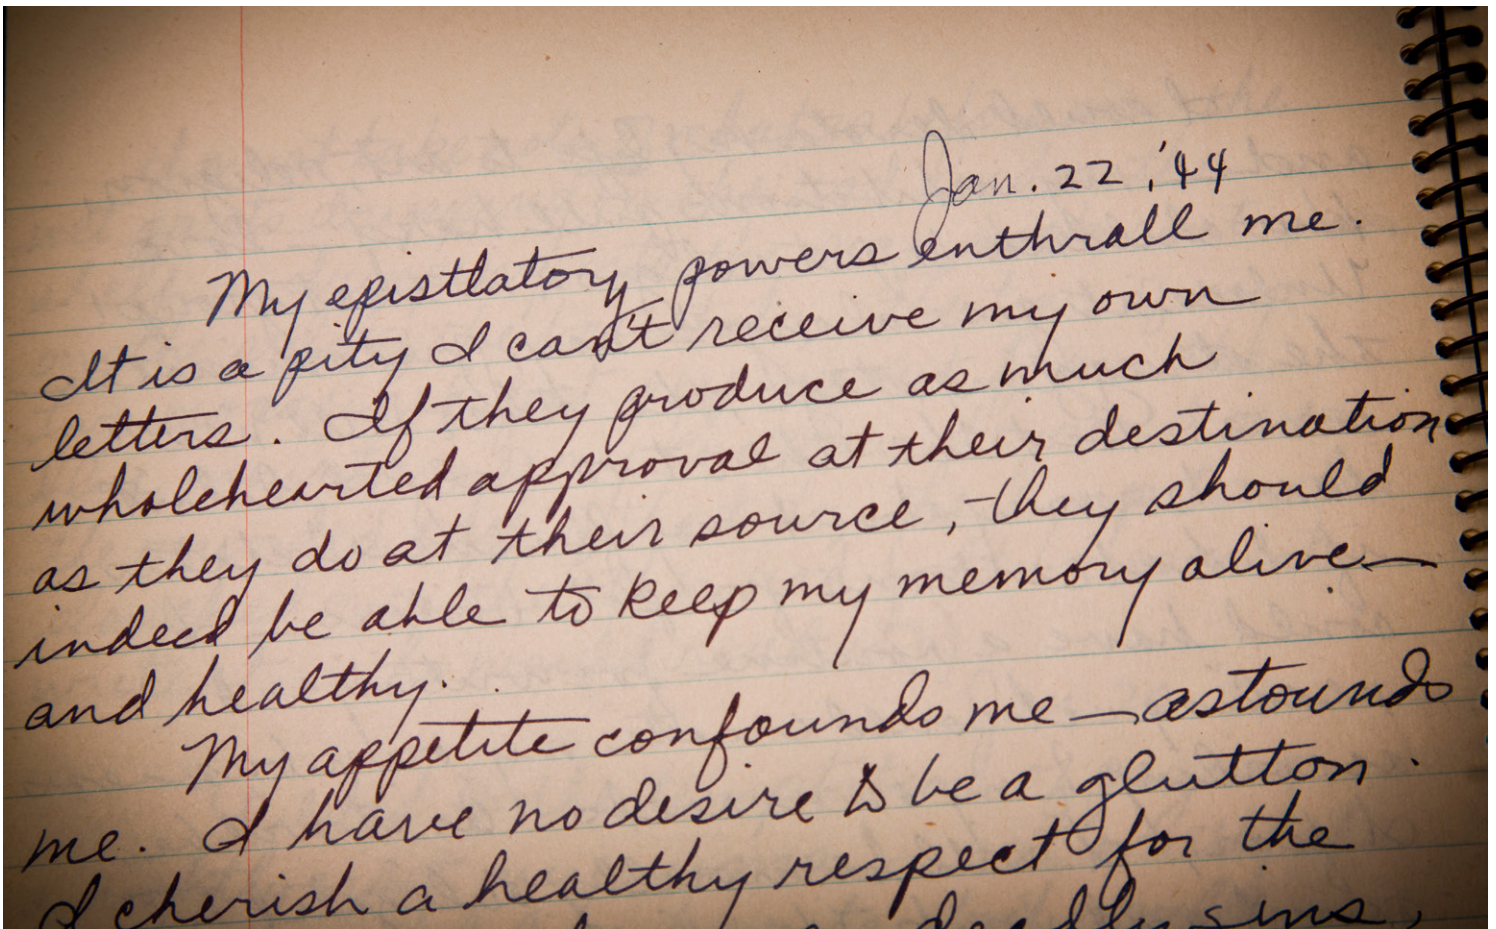 Jan. 22, '44
My epistlatory powers enthrall me.
It is a pity I can't receive my own
letters. If they produce as much
wholehearted approval at their destination
as they do at their source, they should
indeed be able to keep my memory alive—
and healthy.
My appetite confounds me — astounds
me. I have no desire to be a glutton.
I cherish a healthy respect for the
deadly sins,